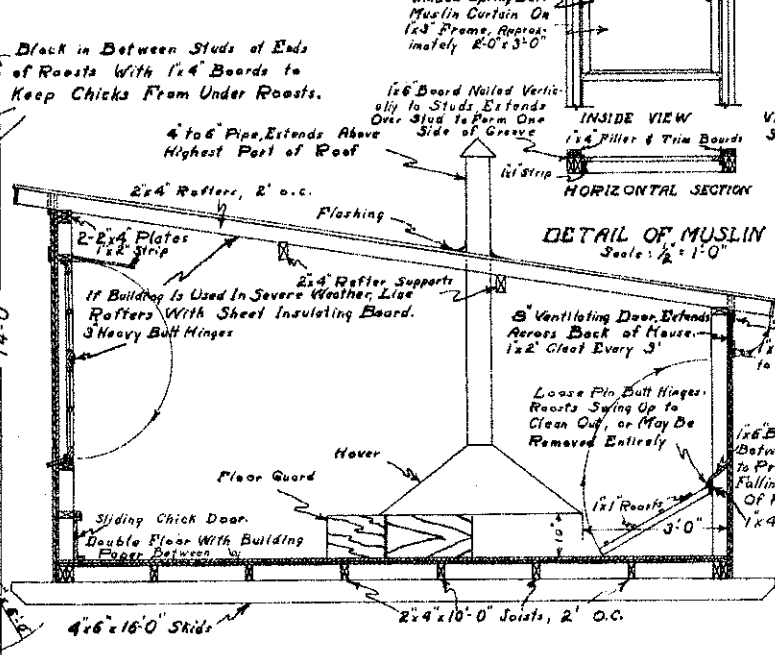 Muslin Curtain On
1"x3" Frame, Approx-
imately 2'-0" x 3'-0"
Block in Between Studs at Ends
of Roosts With 1"x4" Boards to
Keep Chicks From Under Roosts.
1"x6" Board Nailed Verti-
ally to Studs, Extends
Over Stud to Form One
Side of Groove
INSIDE VIEW
1"x4" Filler & Trim Boards
1"x1" Strip
HORIZONTAL SECTION
DETAIL OF MUSLIN
Scale: 1/2" = 1'-0"
4" to 6" Pipe, Extends Above
Highest Part of Roof
2"x4" Rafters, 2' o.c.
Flashing
2-2"x4" Plates
1"x2" Strip
2"x4" Rafter Supports
If Building Is Used In Severe Weather, Line
Rafters With Sheet Insulating Board.
3" Heavy Butt Hinges
8" Ventilating Door, Extends
Across Back of House.
1"x2" Cleat Every 3'
Loose Pin Butt Hinges.
Roosts Swing Up to
Clean Out, or May Be
Removed Entirely
Hover
Floor Guard
1"x1" Roosts
3'-0"
10"
Sliding Chick Door.
Double Floor With Building
Paper Between
4"x6"x16'-0" Skids
2"x4"x10'-0" Joists, 2' O.C.